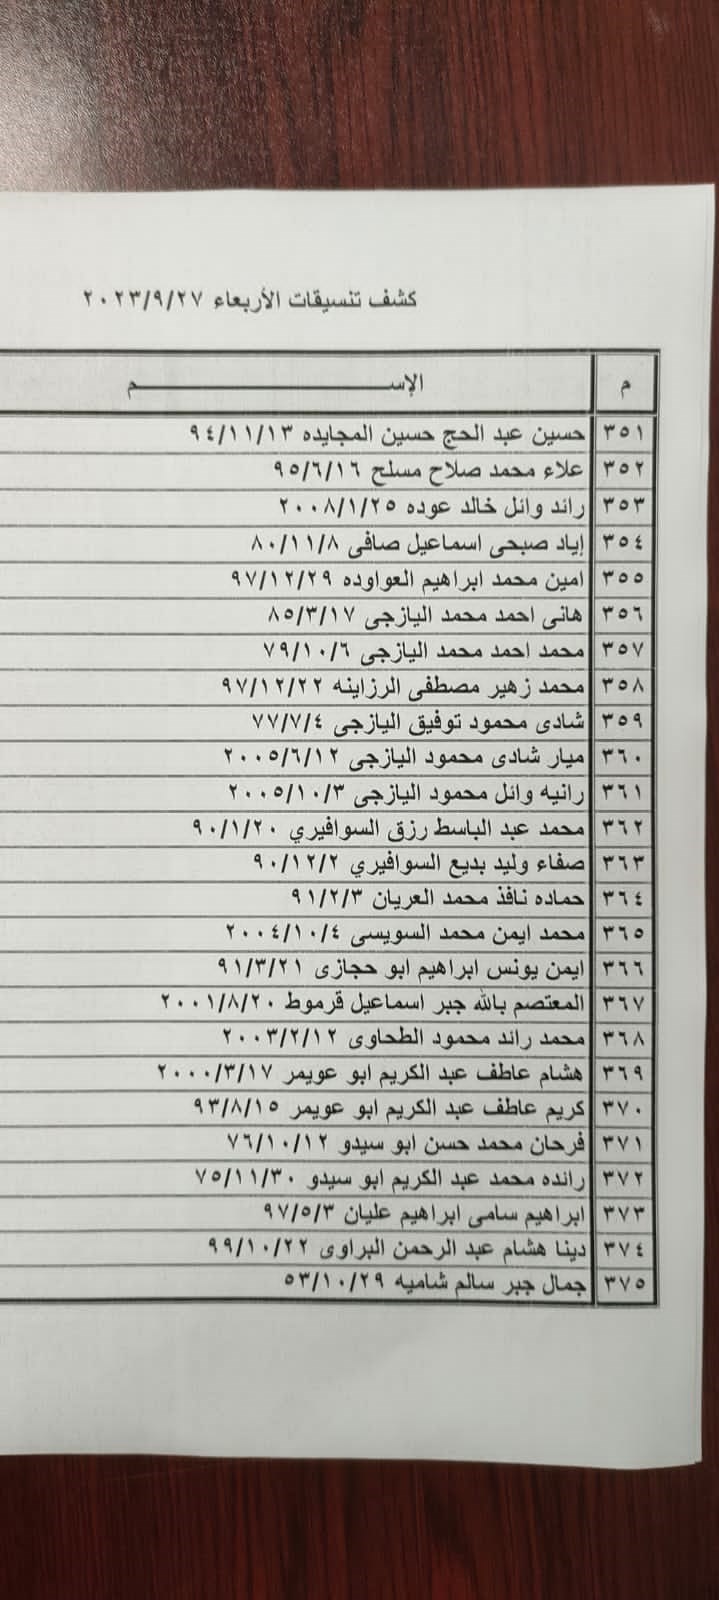 كشف تنسيقات الأربعاء ٢٠٢٣/٩/٢٧
م الإســــــــــــــــــم
٣٥١ حسين عبد الحج حسين المجايده ٩٤/١١/١٣
٣٥٢ علاء محمد صلاح مسلح ٩٥/٦/١٦
٣٥٣ رائد وائل خالد عوده ٢٠٠٨/١/٢٥
٣٥٤ إياد صبحى اسماعيل صافى ٨٠/١١/٨
٣٥٥ امين محمد ابراهيم العواوده ٩٧/١٢/٢٩
٣٥٦ هانى احمد محمد اليازجى ٨٥/٣/١٧
٣٥٧ محمد احمد محمد اليازجى ٧٩/١٠/٦
٣٥٨ محمد زهير مصطفى الرزاينه ٩٧/١٢/٢٢
٣٥٩ شادى محمود توفيق اليازجى ٧٧/٧/٤
٣٦٠ ميار شادى محمود اليازجى ٢٠٠٥/٦/١٢
٣٦١ رانيه وائل محمود اليازجى ٢٠٠٥/١٠/٣
٣٦٢ محمد عبد الباسط رزق السوافيري ٩٠/١/٢٠
٣٦٣ صفاء وليد بديع السوافيري ٩٠/١٢/٢
٣٦٤ حماده نافذ محمد العريان ٩١/٢/٣
٣٦٥ محمد ايمن محمد السويسى ٢٠٠٤/١٠/٤
٣٦٦ ايمن يونس ابراهيم ابو حجازى ٩١/٣/٢١
٣٦٧ المعتصم بالله جبر اسماعيل قرموط ٢٠٠١/٨/٢٠
٣٦٨ محمد رائد محمود الطحاوى ٢٠٠٣/٢/١٢
٣٦٩ هشام عاطف عبد الكريم ابو عويمر ٢٠٠٠/٣/١٧
٣٧٠ كريم عاطف عبد الكريم ابو عويمر ٩٣/٨/١٥
٣٧١ فرحان محمد حسن ابو سيدو ٧٦/١٠/١٢
٣٧٢ رائده محمد عبد الكريم ابو سيدو ٧٥/١١/٣٠
٣٧٣ ابراهيم سامى ابراهيم عليان ٩٧/٥/٣
٣٧٤ دينا هشام عبد الرحمن البراوى ٩٩/١٠/٢٢
٣٧٥ جمال جبر سالم شاميه ٥٣/١٠/٢٩